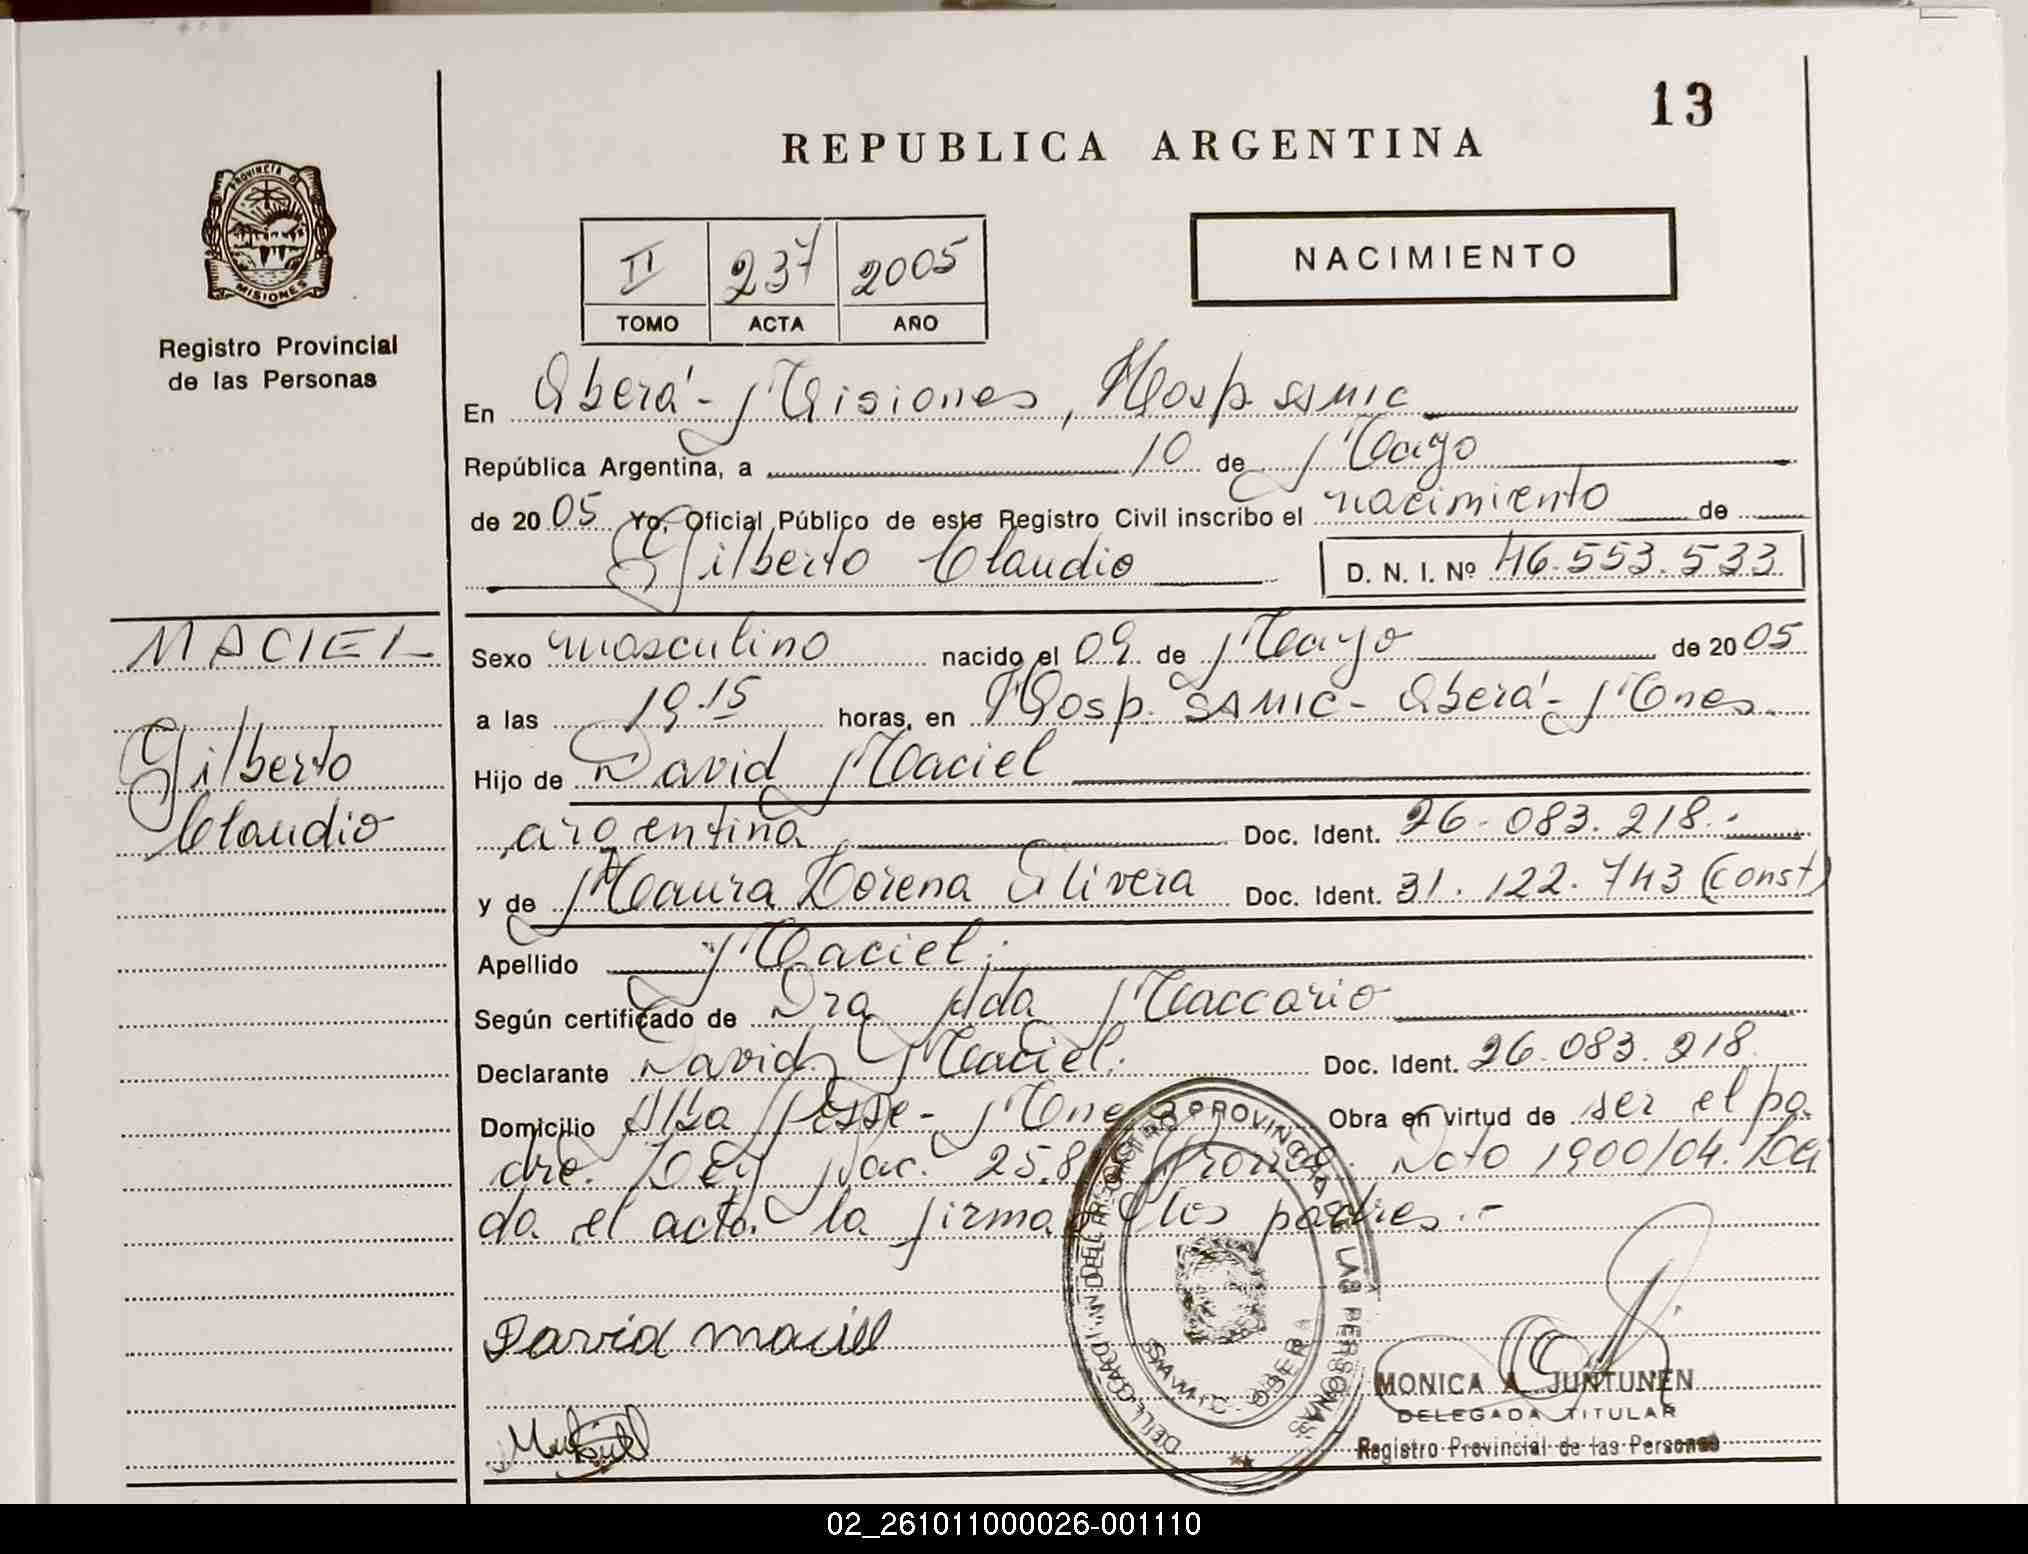 13
REPUBLICA ARGENTINA
PROVINCIA DE
MISIONES
Registro Provincial
de las Personas
II 237 2005
TOMO ACTA AÑO
NACIMIENTO
En Oberá - Misiones, Hosp SAMIC
República Argentina, a 10 de Mayo
de 2005 Yo, Oficial Público de este Registro Civil inscribo el nacimiento de
Gilberto Claudio D. N. I. Nº 46.553.533
MACIEL
Gilberto
Claudio
Sexo masculino nacido el 09 de Mayo de 2005
a las 19.15 horas, en Hosp. SAMIC - Oberá - Mnes.
Hijo de David Maciel
argentina Doc. Ident. 26.083.218.-
y de Maura Lorena Olivera Doc. Ident. 31.122.743 (const)
Apellido Maciel.
Según certificado de Dra Ada Maccario
Declarante David Maciel. Doc. Ident. 26.083.218
Domicilio Alba Posse - Mnes Obra en virtud de ser el pa
dre. Ley Nac. 25.8 Nota 1900/04. Leí
da el acta. la firman los padres.-
David maciel
MONICA A. JUNTUNEN
DELEGADA TITULAR
Registro Provincial de las Personas
02_261011000026-001110